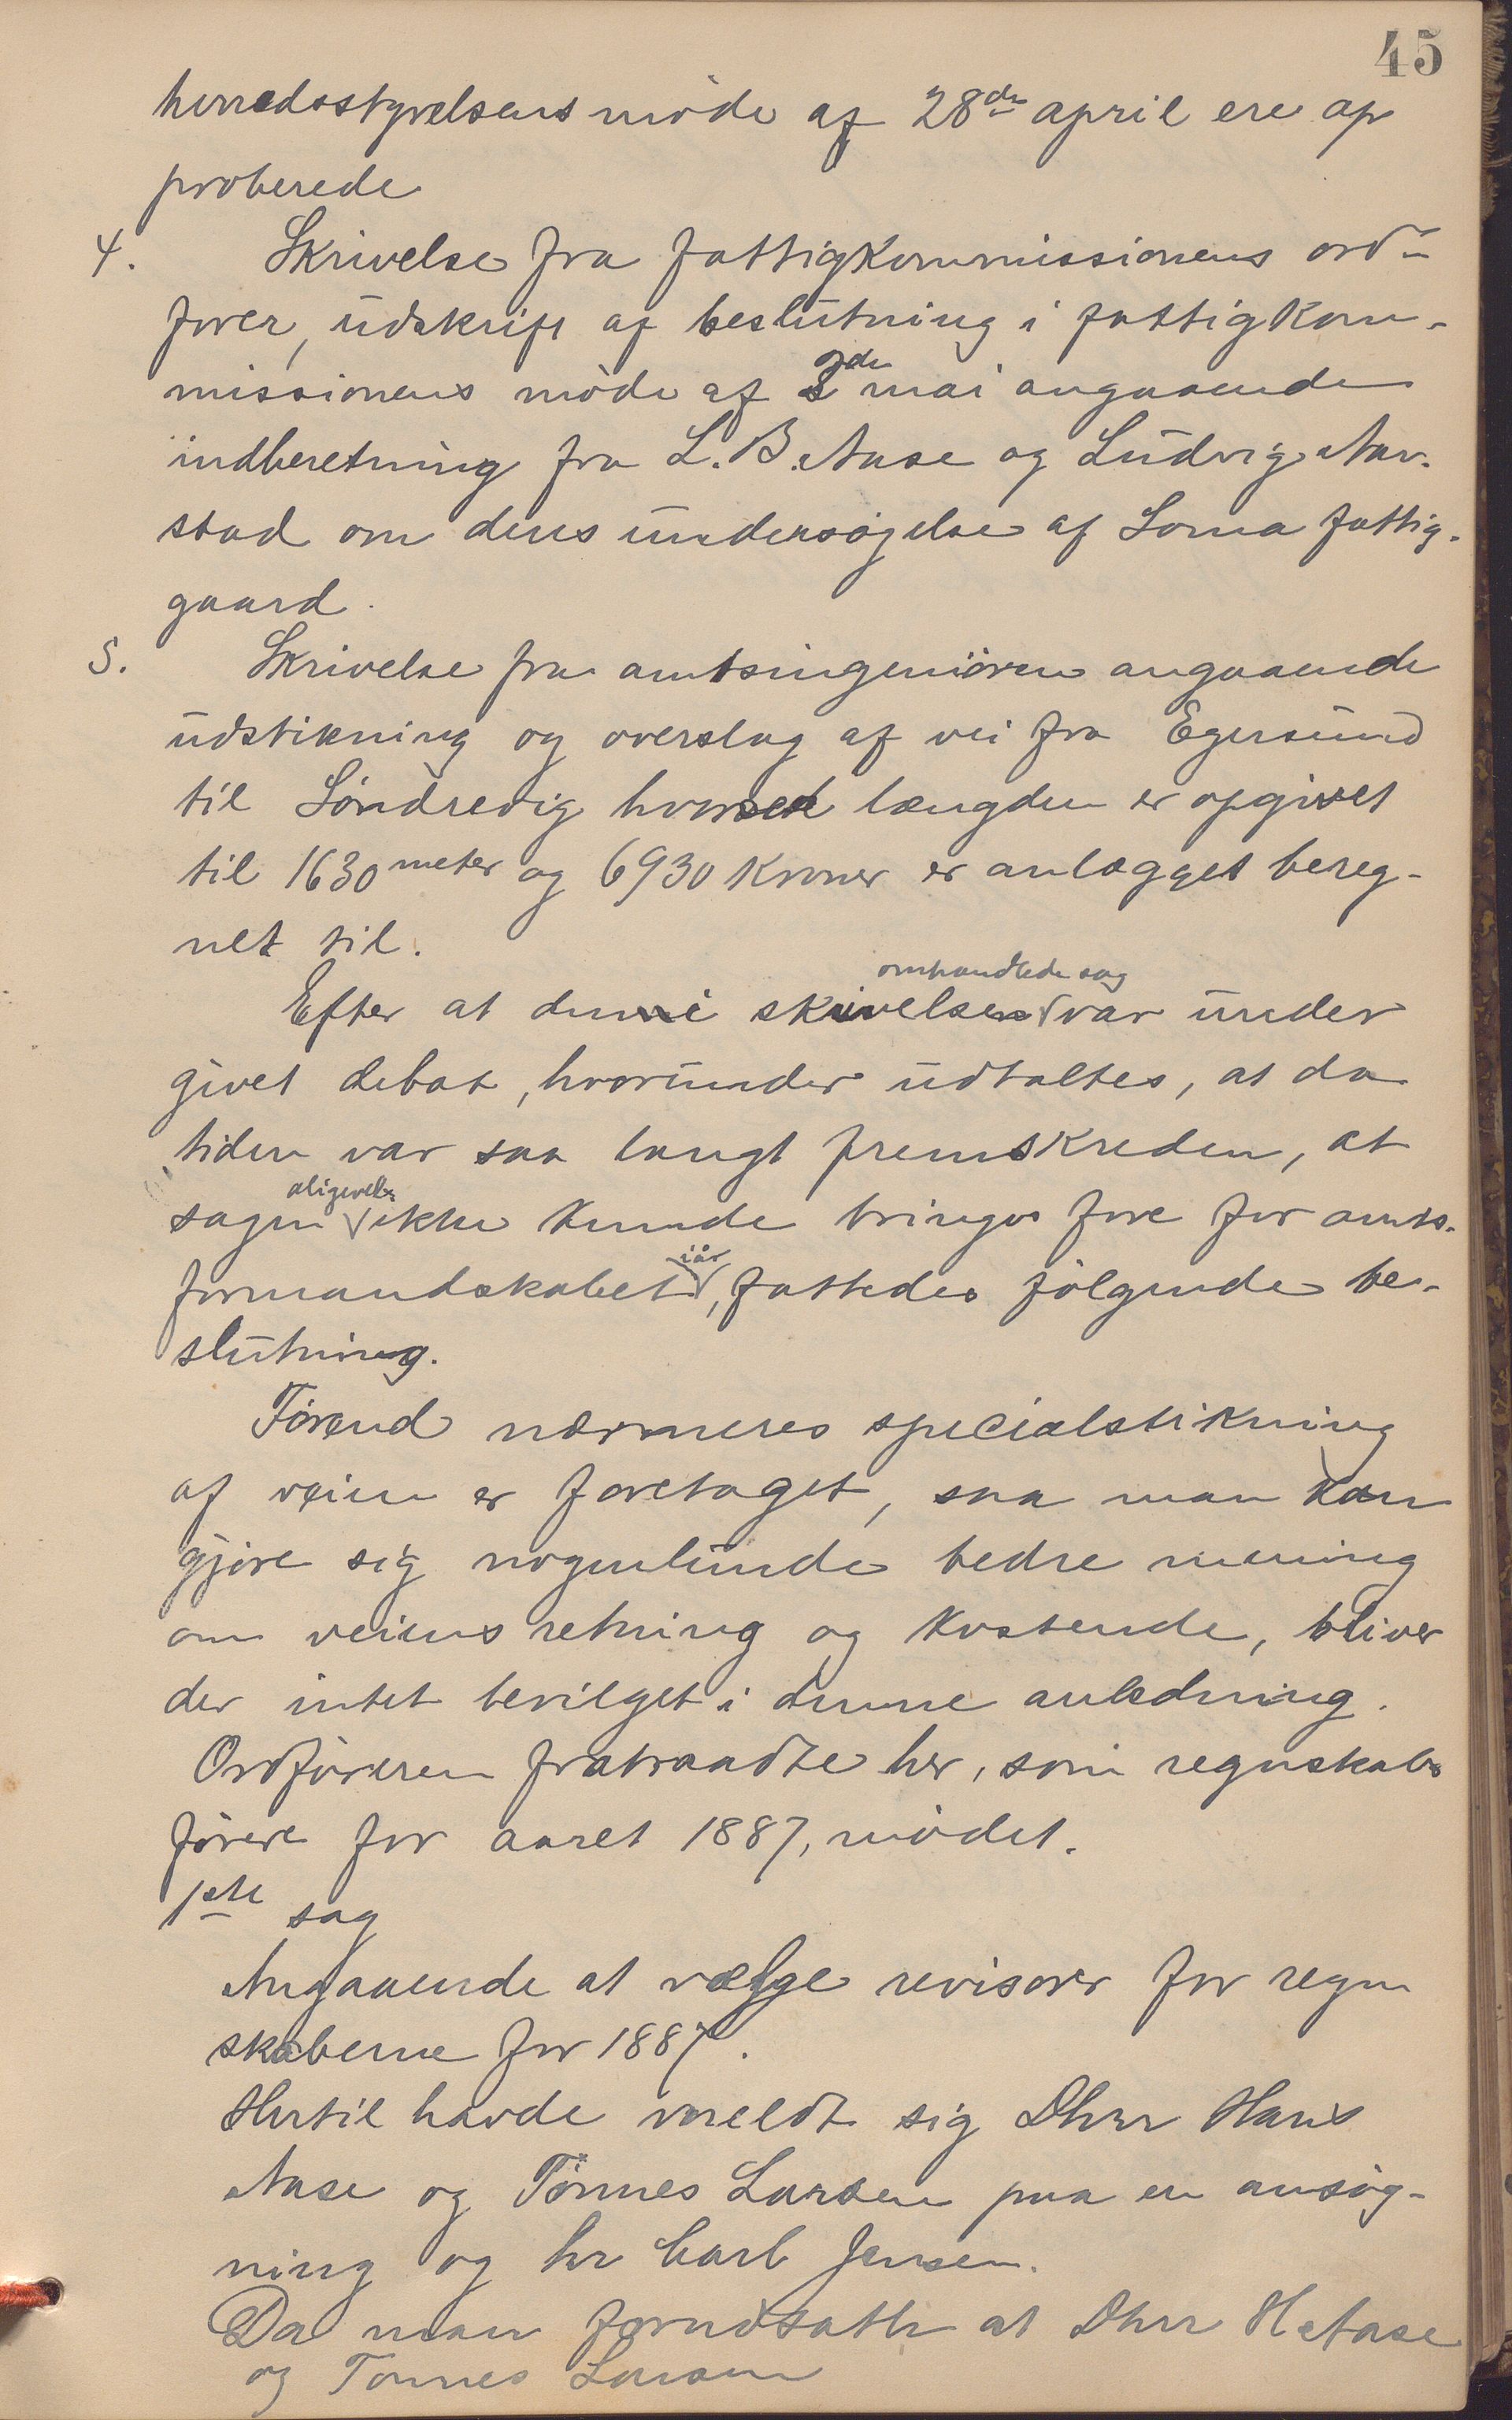 45
herredsstyrelsens møde af 28de april ere ap
proberede
4. Skrivelse fra fattigkommissionens ord-
fører, udskrift af beslutning i fattigkom-
missionens møde af 3de mai angaaende
indberetning fra L. B. Aase og Ludvig Aar-
stad om deres undersøgelse af Loma fattig-
gaard.
5. Skrivelse fra amtsingeniøren angaaende
udstikning og overslag af vei fra Egersund
til Søndrevig hvorved længden er opgivet
til 1630 meter og 6930 kroner er anlægget bereg-
net til.
Efter at den i skrivelsen omhandlede sag var under
givet debat, hvorunder udtaltes, at da
tiden var saa langt fremskreden, at
sagen aligevel ikke kunde bringes fore for amts-
formandskabet iår, fattedes følgende be-
slutning.
Førend nærmeres specialstikning
af veien er foretaget, saa man kan
gjøre sig nogenlunde bedre mening
om veiens retning og kostende, bliver
der intet bevilget i denne anledning.
Ordføreren fratraadte her, som regnskabs
fører for aaret 1887, mødet.
1ste sag
Angaaende at vælge revisorer for regn
skaberne for 1887.
Hertil havde meldt sig Dhrr Hans
Aase og Tønnes Larsen paa en ansøg-
ning og hr Carl Jensen.
Da man forudsatte at Dhrr H Aase
og Tønnes Larsen